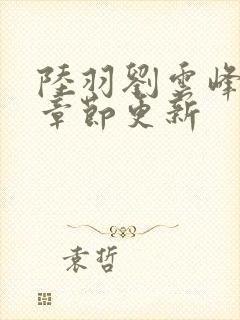 陸羽劉雲峰
章節更新
袁哲